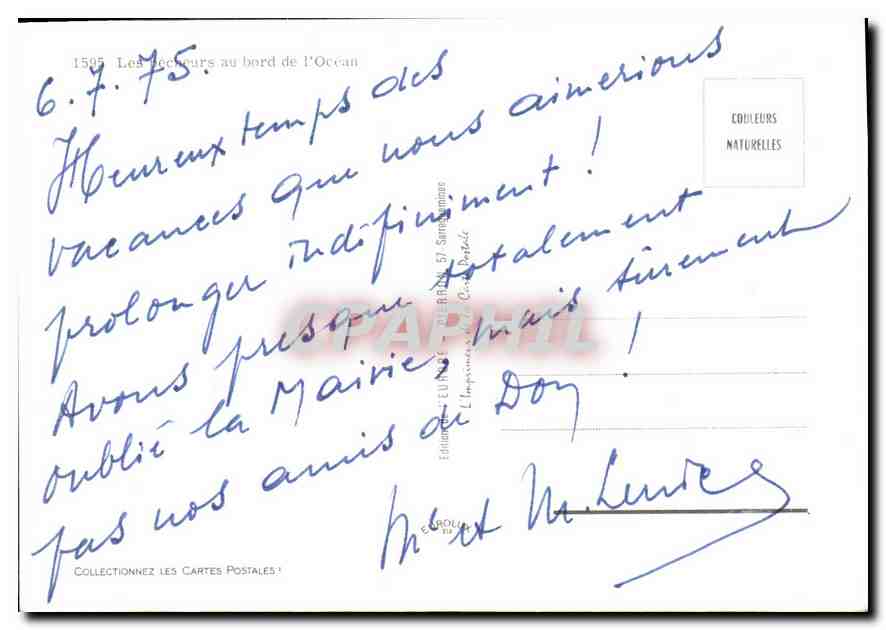 1595 Les pêcheurs au bord de l'Océan
6.7.75.
Heureux temps des
vacances que nous aimerions
prolonger indéfiniment !
Avons presque totalement
oublié la Mairie, mais sûrement
pas nos amis de Don !
Me et M.
COULEURS
NATURELLES
Edition de l'EUROPE PIERRON 57-Sarreguemines
L'Imprimeur de la Carte Postale
CPAPHIL
EUROLUX
COLLECTIONNEZ LES CARTES POSTALES !